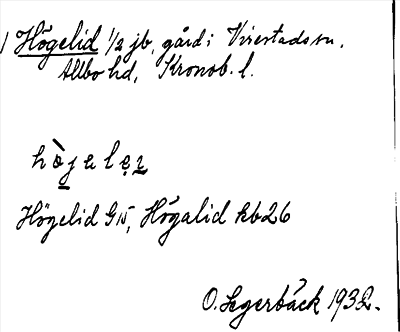 1 Högelid 1/2 jb, gård i Virestads sn,
Allbo hd, Kronob. l.
Högelid G15, Högalid kb26
O. Segerbäck 1932.